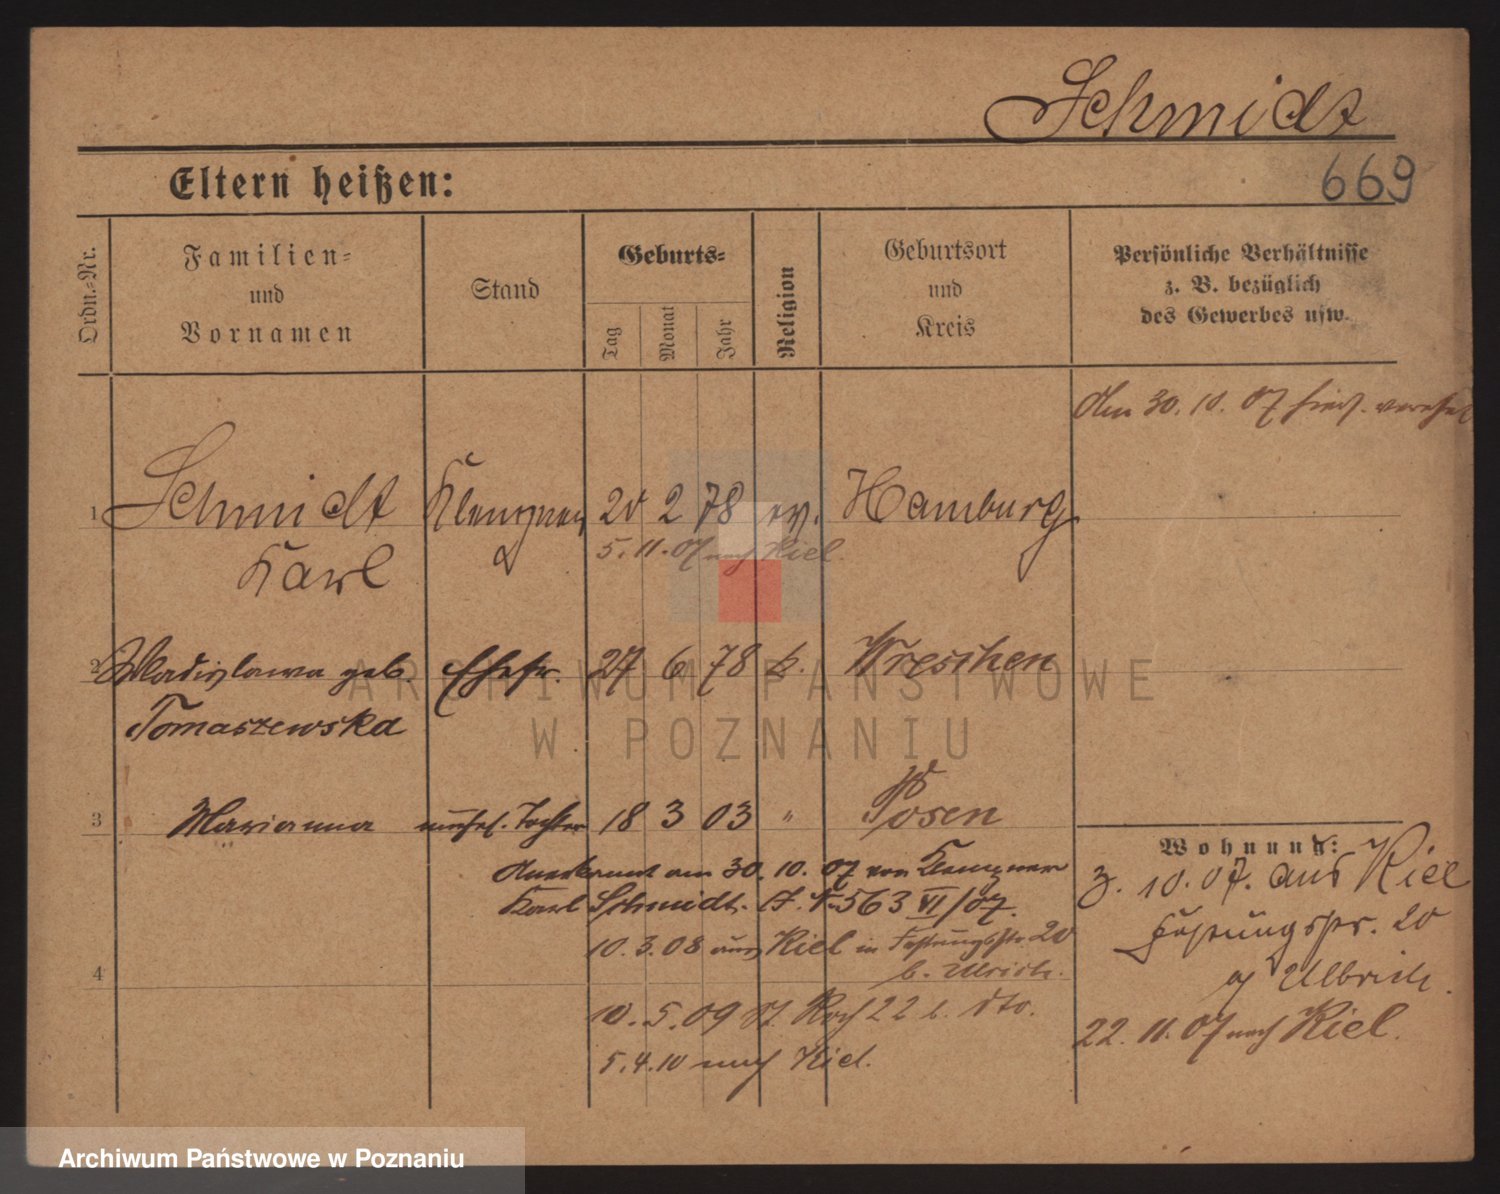 Schmidt
669
Eltern heißen:
Ordn.=Nr.
Familien=
und
Vornamen
Stand
Geburts=
Tag
Monat
Jahr
Religion
Geburtsort
und
Kreis
Persönliche Verhältnisse
z. B. bezüglich
des Gewerbes usw.
Am 30. 10. 07 hier verehel.
1 Schmidt Klempner 20 2 78 ev. Hamburg
Karl
5. 11. 07 nach Kiel.
2 Wladislawa geb. Ehefr. 27 6 78 k. Wreschen
Tomaszewska
3 Marianna unehel. Tochter 18 3 03 " Posen
Anerkannt am 30. 10. 07 von Klempner
Karl Schmidt. 563 VI/07.
10. 3. 08 aus Kiel in Festungsstr. 20
b. Ulrich.
4
10. 5. 09 St. Roch 22 b. dto.
5. 4. 10 nach Kiel.
Wohnung:
3. 10. 07. aus Kiel
20
Ulbrich.
22. 11. 07 nach Kiel.
ARCHIWUM PAŃSTWOWE
W POZNANIU
Archiwum Państwowe w Poznaniu